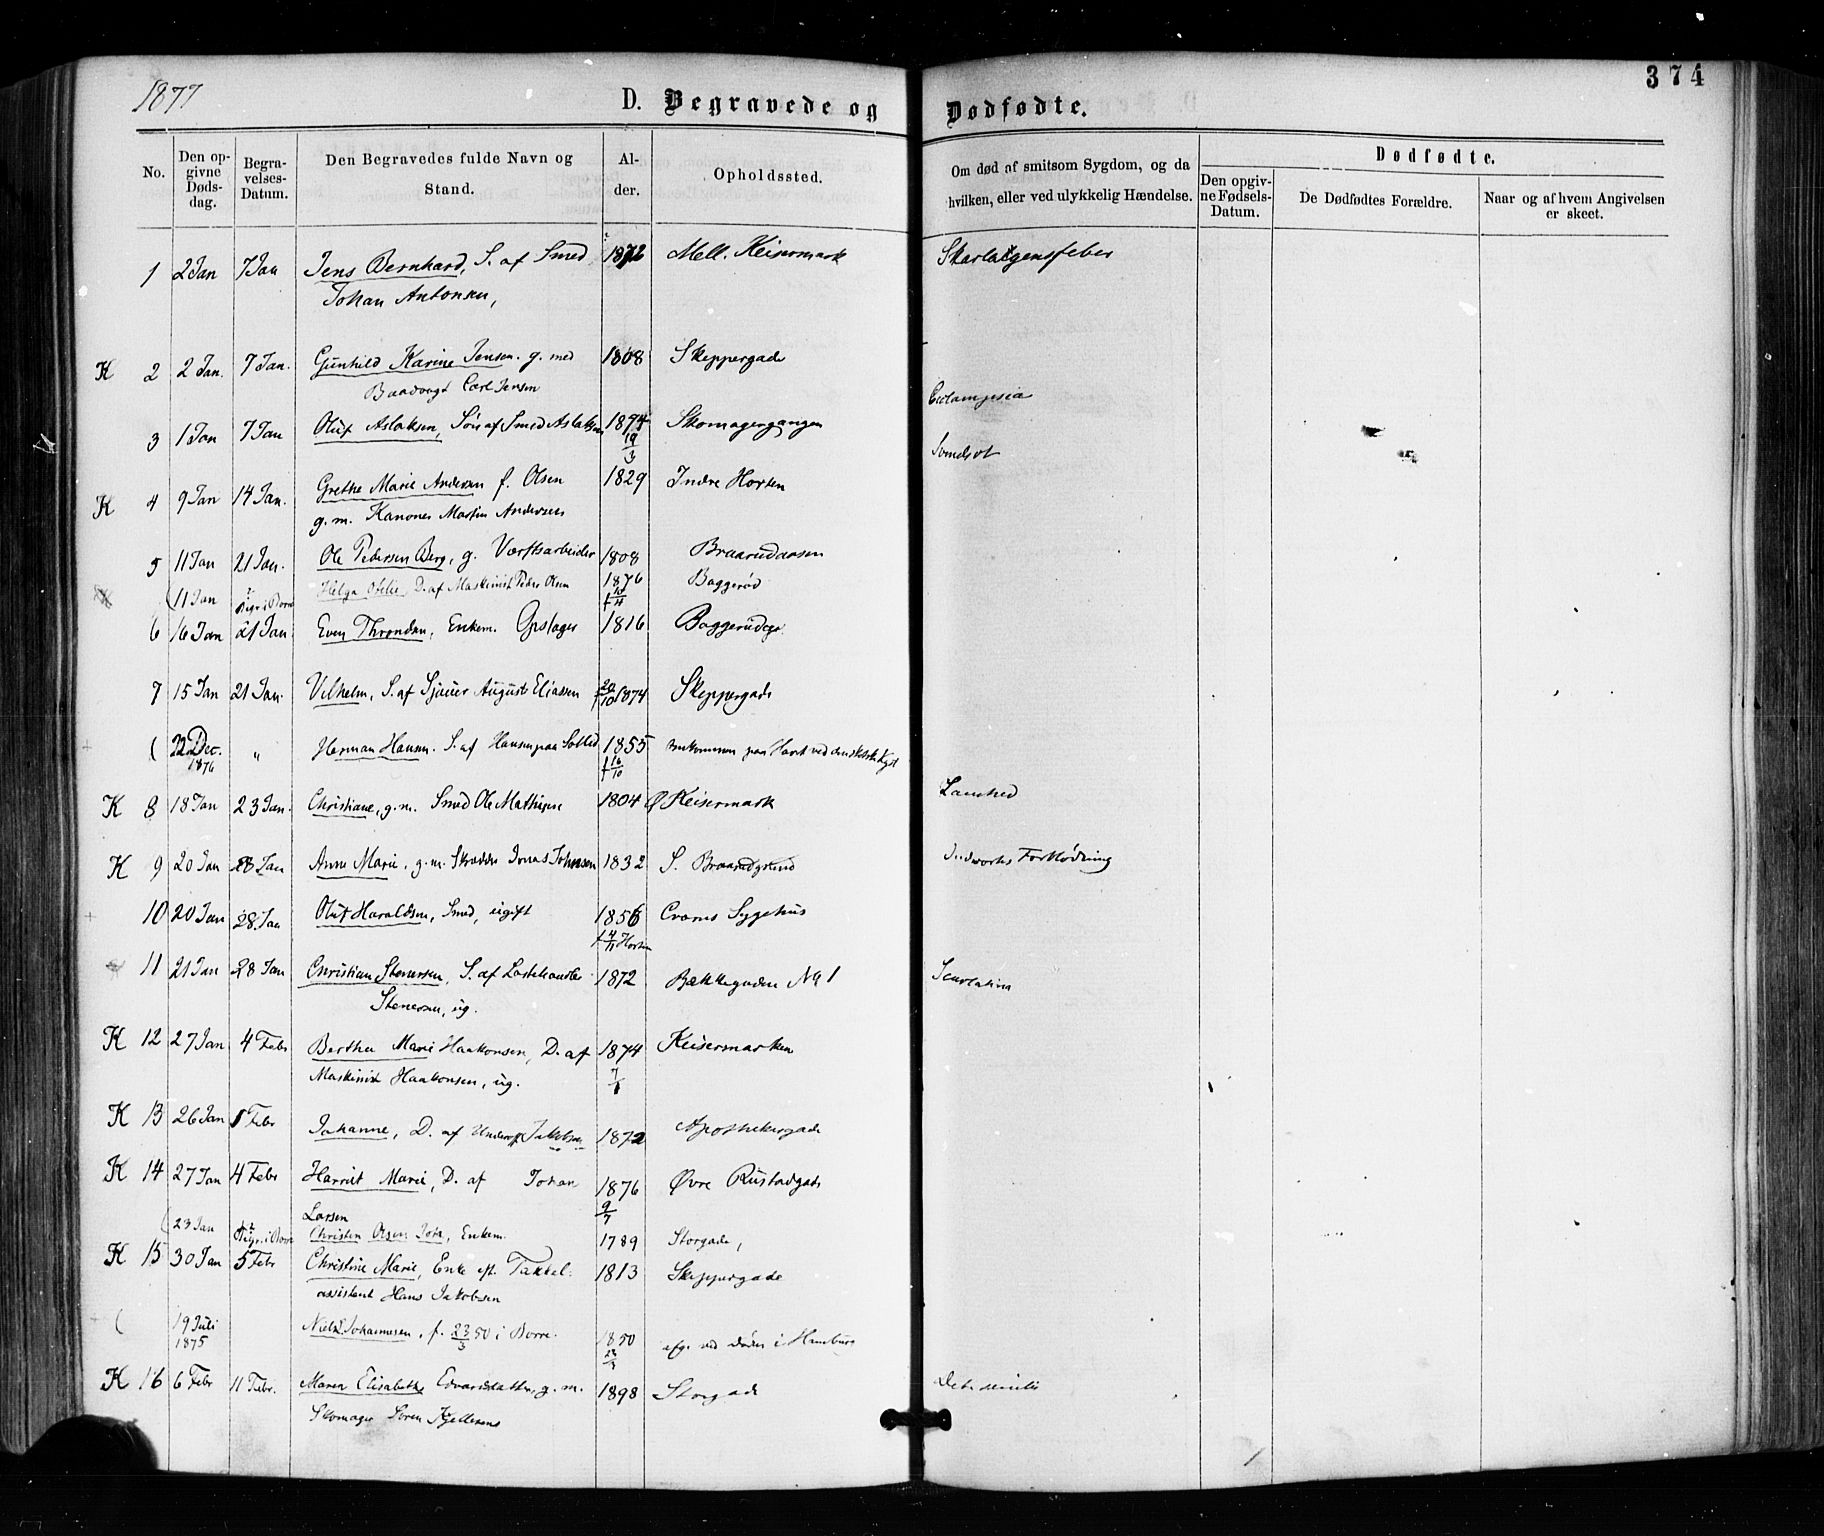 1877
D. Begravede og
Dødfødte.
374
No.
Den opgivne Dødsdag.
Begravelses-Datum.
Den Begravedes fulde Navn og Stand.
Alder.
Opholdssted.
Om død af smitsom Sygdom, og da hvilken, eller ved ulykkelig Hændelse.
Dødfødte.
Den opgivne Fødsels-Datum.
De Dødfødtes Forældre.
Naar og af hvem Angivelsen er skeet.
1 2 Jan 7 Jan Jens Bernhard, S. af Smed 1872 Mell. Keisermark Skarlagensfeber
Johan Antonsen,
K 2 2 Jan. 7 Jan. Gunhild Karine Jensen. g. med 1808 Skeppergade
Baadvogt Carl Jensen
Eclampsia
3 1 Jan 7 Jan Oluf Aslaksen, Søn af Smed Aslaksen 1874 Skomagergangen
19/3
K 4 9 Jan 14 Jan. Grethe Marie Andersen f. Olsen 1829 Indre Horten
g. m. Kanoner Martin Andersen
5 11 Jan 21 Jan. Ole Pedersen Berg, g. Værftsarbeider 1808 Braarudaasen
(11 Jan Begr. i Borre Helga Otelie, D. af Maskinist Peder Olsen 1876 Baggerød
6 16 Jan 21 Jan Even Throndsen, Enkem. 1816
7 15 Jan 21 Jan. Vilhelm, S. af August Eliassen 20/10 1874 Skeppergade
( 22 Dec. 1876 " Herman Hansen. S. af Hansen paa 1855 omkommen paa Havet ved den Kyst
16/10
K 8 18 Jan 23 Jan. Christiane, g. m. Smed Ole Mathisen 1804 Ø Keisermark
K 9 20 Jan 28 Jan Anne Marie, g. m. Skrædder Jonas Johnsen 1832 S. Braarudgrund Indvortes Forblødning
10 20 Jan 28 Jan Oluf Haraldsen, Smed, ugift 1856 Sygehus
f 4/11 Horten
11 21 Jan 28 Jan Christian Stenersen, S. af 1872 Bækkegaden No 1 Scarlatina
Stenersen, ug.
K 12 27 Jan 4 Febr Berthe Marie Haakonsen, D. af 1874 Keisermarken
Maskinist Haakonsen, ug.
K 13 26 Jan 1 Febr Johanne, D. af Underoff Jakobsen 1872 Apothekergade
K 14 27 Jan 4 Febr Harriet Marie, D. af Johan 1876 Øvre Rustadgade
9/7
Larsen
(23 Jan Begr. i Borre Christen Olsen, Enkem. 1789 Storgade,
K 15 30 Jan 5 Febr Christine Marie, Enke eft. Takkel- 1813 Skeppergade
assistent Hans Jakobsen
( 19 Juli 1875 Niels Johannesen, f. 23/3 50 i Borre. 1850 afg. ved Døden i Hamburg
23/3
K 16 6 Febr 11 Febr. Maren Elisabeth Edvardsdatter, g. m. 1898 Storgade
Skomager Søren